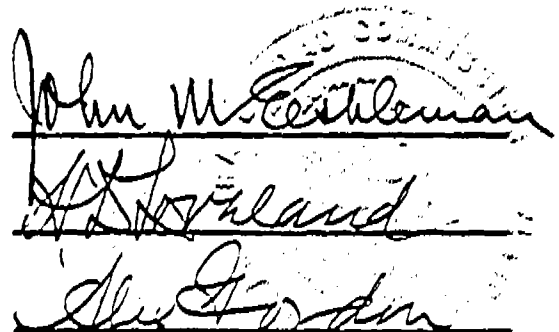 John M. Eshleman
H. D. Loveland
Alex Gordon